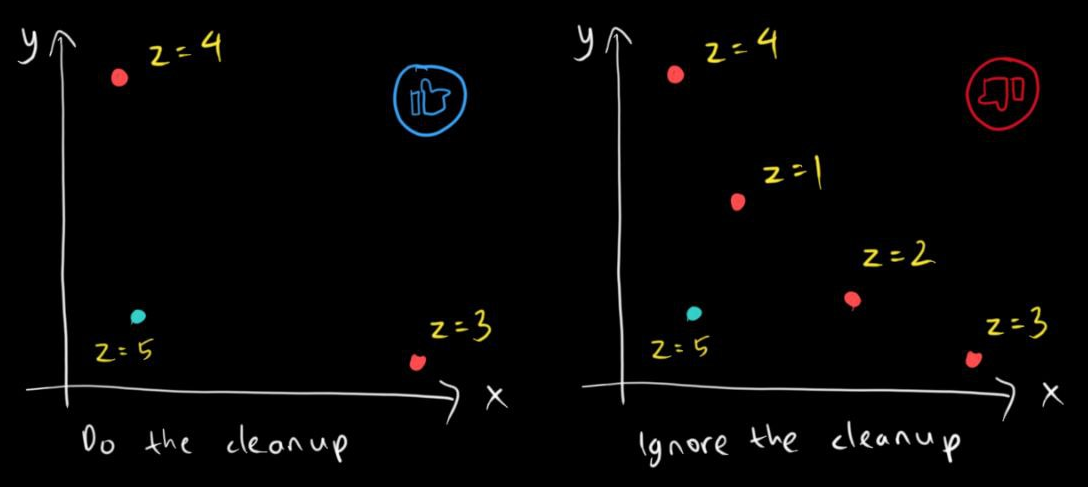 y
z = 4
z = 5
z = 3
x
Do the cleanup
y
z = 4
z = 1
z = 2
z = 5
z = 3
x
Ignore the cleanup